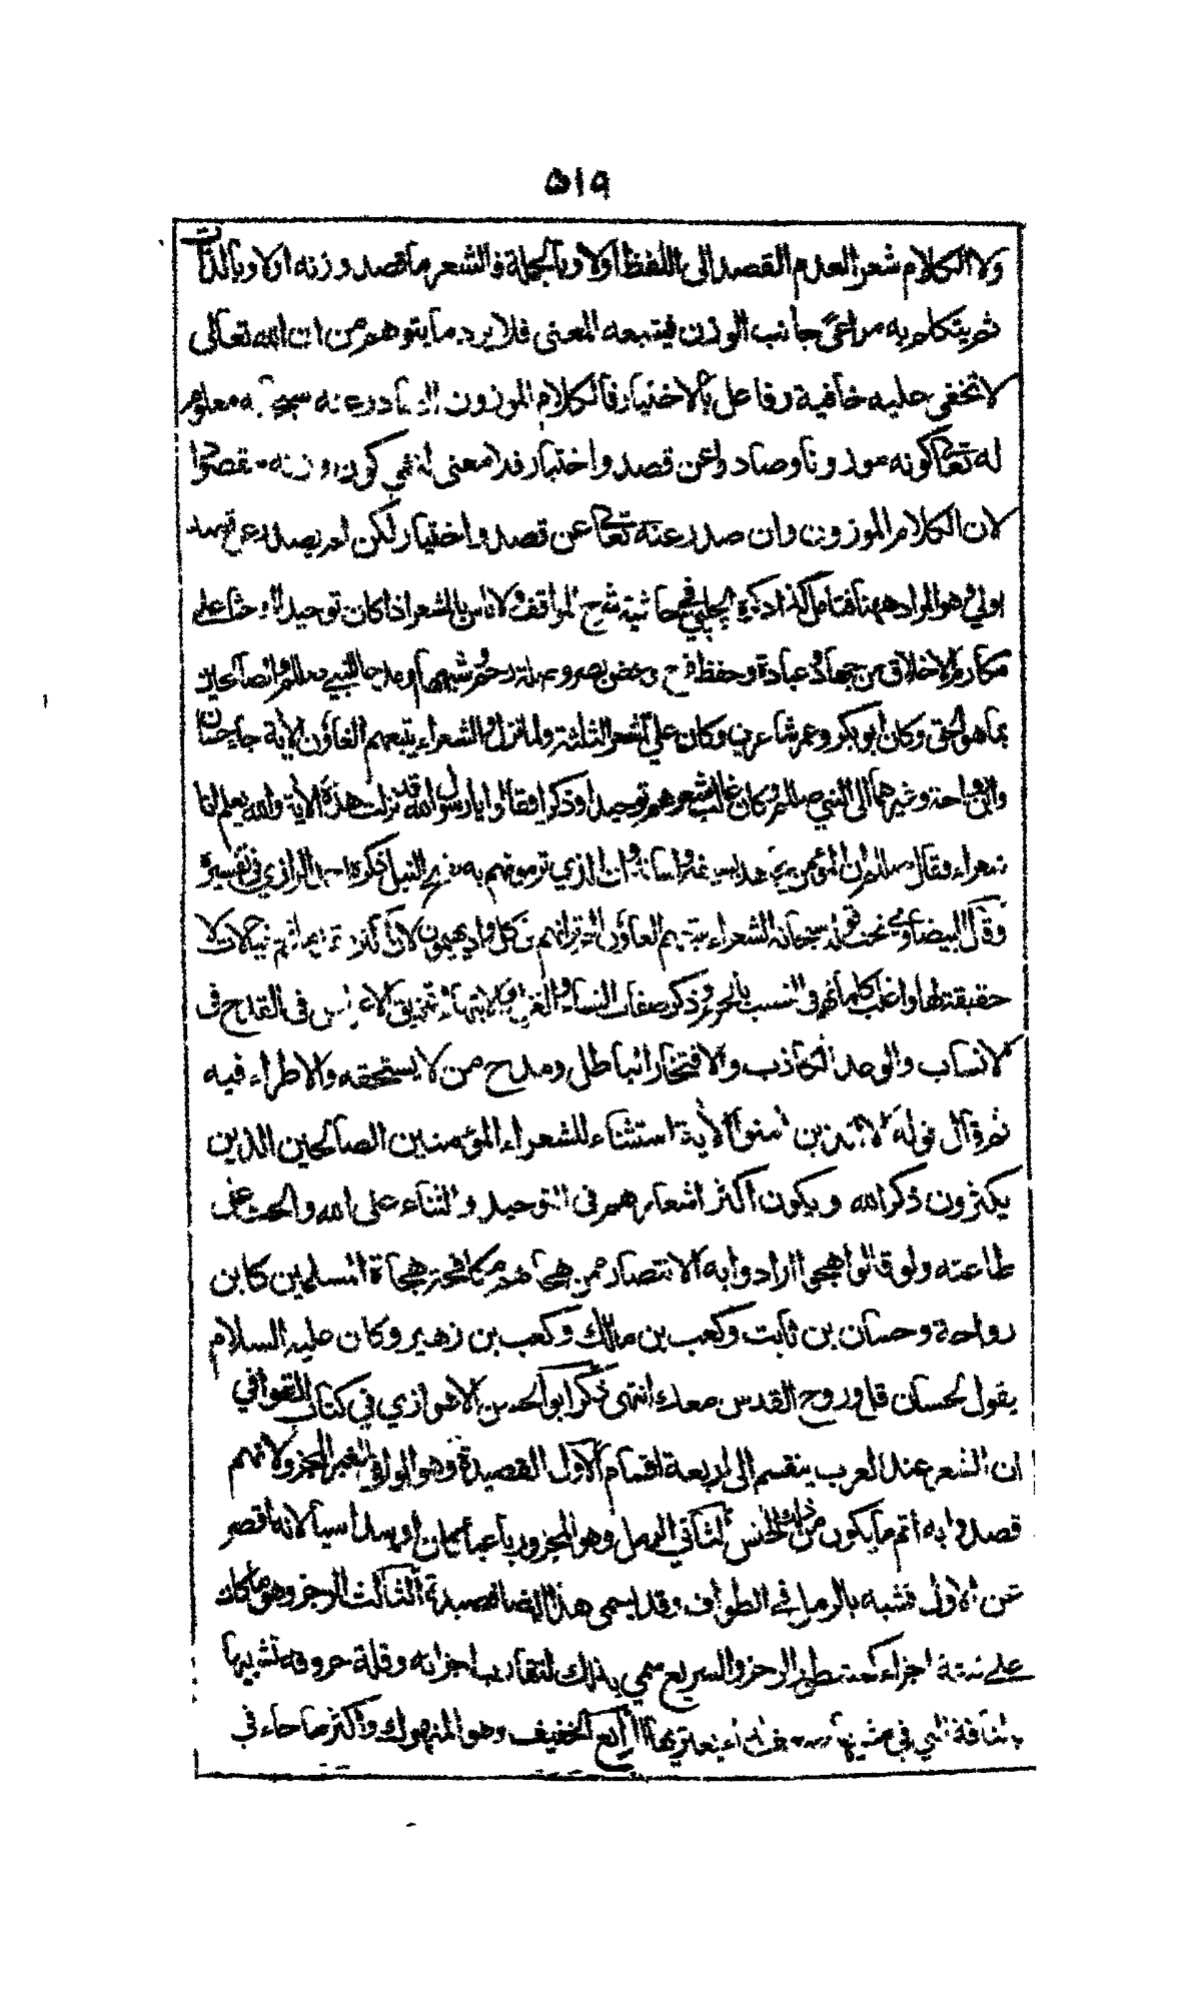 ٥١٩
ولا الكلام شعرا لعدم القصد الى اللفظ اولا وبالجملة فالشعر ما قصد وزنه اولا وبالذات
ثم يتكلم به مراعى جانب الوزن فيتبعه المعنى فلا يرد ما يتوهم من ان الله تعالى
لا تخفى عليه خافية وفاعل بالاختيار فالكلام الموزون الصادر عنه سبحانه معلوم
له تعالى كونه موزونا وصادرا عن قصد واختيار فلا معنى لنفي كون وزنه مقصودا
لان الكلام الموزون وان صدر عنه تعالى عن قصد واختيار لكن لم يصدر عن قصد
اولي وهو المراد ههنا فتامل كذا ذكره الچلپي في حاشية شرح المواقف ولا باس بالشعر اذا كان توحيدا او حثا على
مكارم الاخلاق من جهاد وعبادة وحفظ فرج وغض بصر وصلة رحم وشبهها او مدحا للنبي صللم والصالحين
بما هو الحق وكان ابو بكر وعمر شاعرين وكان علي اشعر الثلثة ولما نزل والشعراء يتبعهم الغاؤن الاية جاء حسان
وابن رواحة وغيرهما الى النبي صللم وكان غالب شعرهم توحيدا وذكرا فقالوا يا رسول الله قد نزلت هذه الاية والله يعلم انا
شعراء فقال صللم ان المؤمن يجاهد بسيفه ولسانه وان الذي ترمونهم به نضح النبل ذكره احمد الرازي في تفسيره
وقال البيضاوي تحت قوله سبحانه والشعراء يتبعهم الغاؤن الم تر انهم في كل واد يهيمون لان اكثر مقدماتهم خيالات لا
حقيقة لها واغلب كلماتهم في النسيب بالحرم وذكر صفات النساء والغزل والابتهار وتمزيق الاعراض في القدح في
الانساب والوعد الكاذب والافتخار الباطل ومدح من لا يستحقه والاطراء فيه
ثم قال قوله الا الذين امنوا الاية استثناء للشعراء المؤمنين الصالحين الذين
يكثرون ذكر الله ويكون اكثر اشعارهم في التوحيد والثناء على الله والحث على
طاعته ولو قالوا هجوا ارادوا به الانتصار ممن هجاهم مكافحة هجاة المسلمين كابن
رواحة وحسان بن ثابت وكعب بن مالك وكعب بن زهير وكان عليه السلام
يقول لحسان قل وروح القدس معك انتهى ذكر ابو الحسن الاهوازي في كتاب القوافي
ان الشعر عند العرب ينقسم الى اربعة اقسام الاول القصيدة وهو الوافي الغير المجزو لانهم
قصدوا به اتم ما يكون من ذلك الجنس الثاني الرمل وهو المجزو رباعيا كان او سداسيا لانه اقصر
عن الاول فشبه بالرمل في الطواف وقد يسمى هذا ايضا قصيدة الثالث الرجز وهو ما كان
على ثلثة اجزاء كمشطور الرجز والسريع سمي بذلك لتقارب اجزائه وقلة حروفه تشبيها
بالناقة التي في مشيها ضعف لداء يعتريها الرابع الخفيف وهو المنهوك واكثر ما جاء في